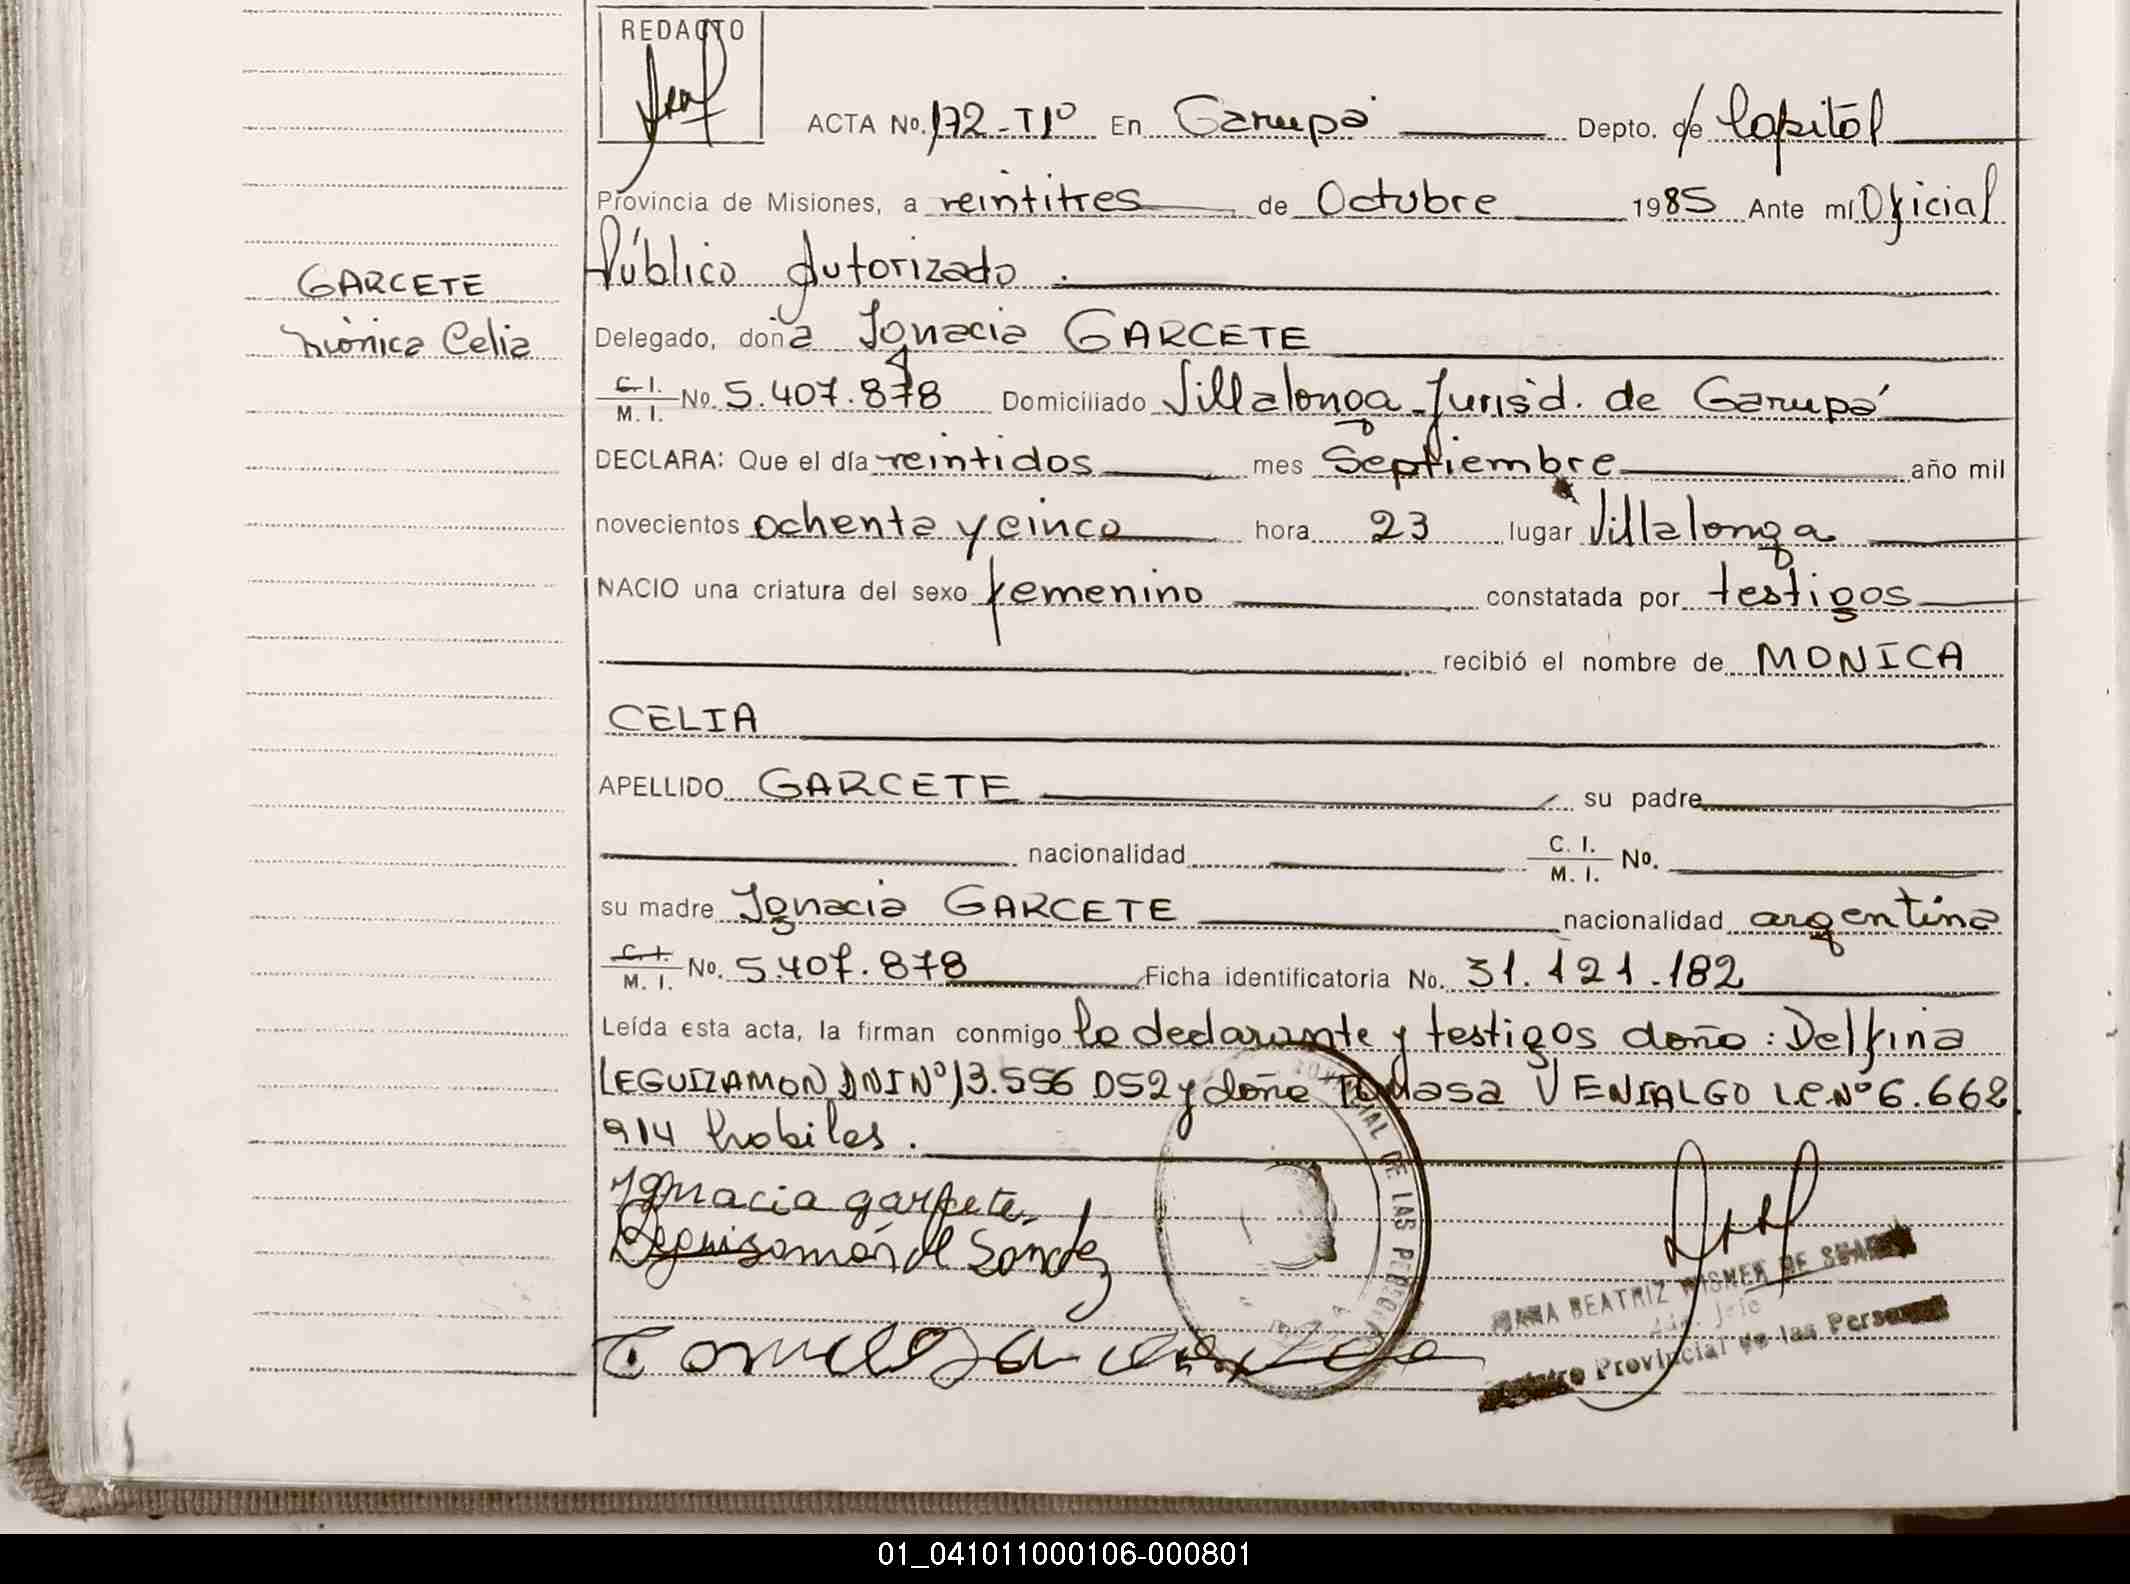 REDACTO
ACTA No. 172-Tº1º En Garupá Depto. de Capital
Provincia de Misiones, a veintitres de Octubre 1985 Ante mi Oficial
Público Autorizado.
GARCETE
Mónica Celia
Delegado, doña Ignacia GARCETE
C. I. M. I. No. 5.407.878 Domiciliado Villalonga-Jurisd. de Garupá
DECLARA: Que el día veintidos mes Septiembre año mil
novecientos ochenta y cinco hora 23 lugar Villalonga
NACIO una criatura del sexo femenino constatada por testigos
recibió el nombre de MONICA
CELIA
APELLIDO GARCETE su padre
nacionalidad C. I. M. I. No.
su madre Ignacia GARCETE nacionalidad argentina
C. I. M. I. No. 5.407.878 Ficha identificatoria No. 31.121.182
Leída esta acta, la firman conmigo la declarante y testigos doña: Delfina
LEGUIZAMON DNI Nº 13.556 052 y doña Tomasa VENIALGO L.C. Nº 6.662
914 habiles.
Ignacia garcete
Leguisamón de
BEATRIZ DE
Jefe
Provincial de las Personas
DE LAS
01_041011000106-000801